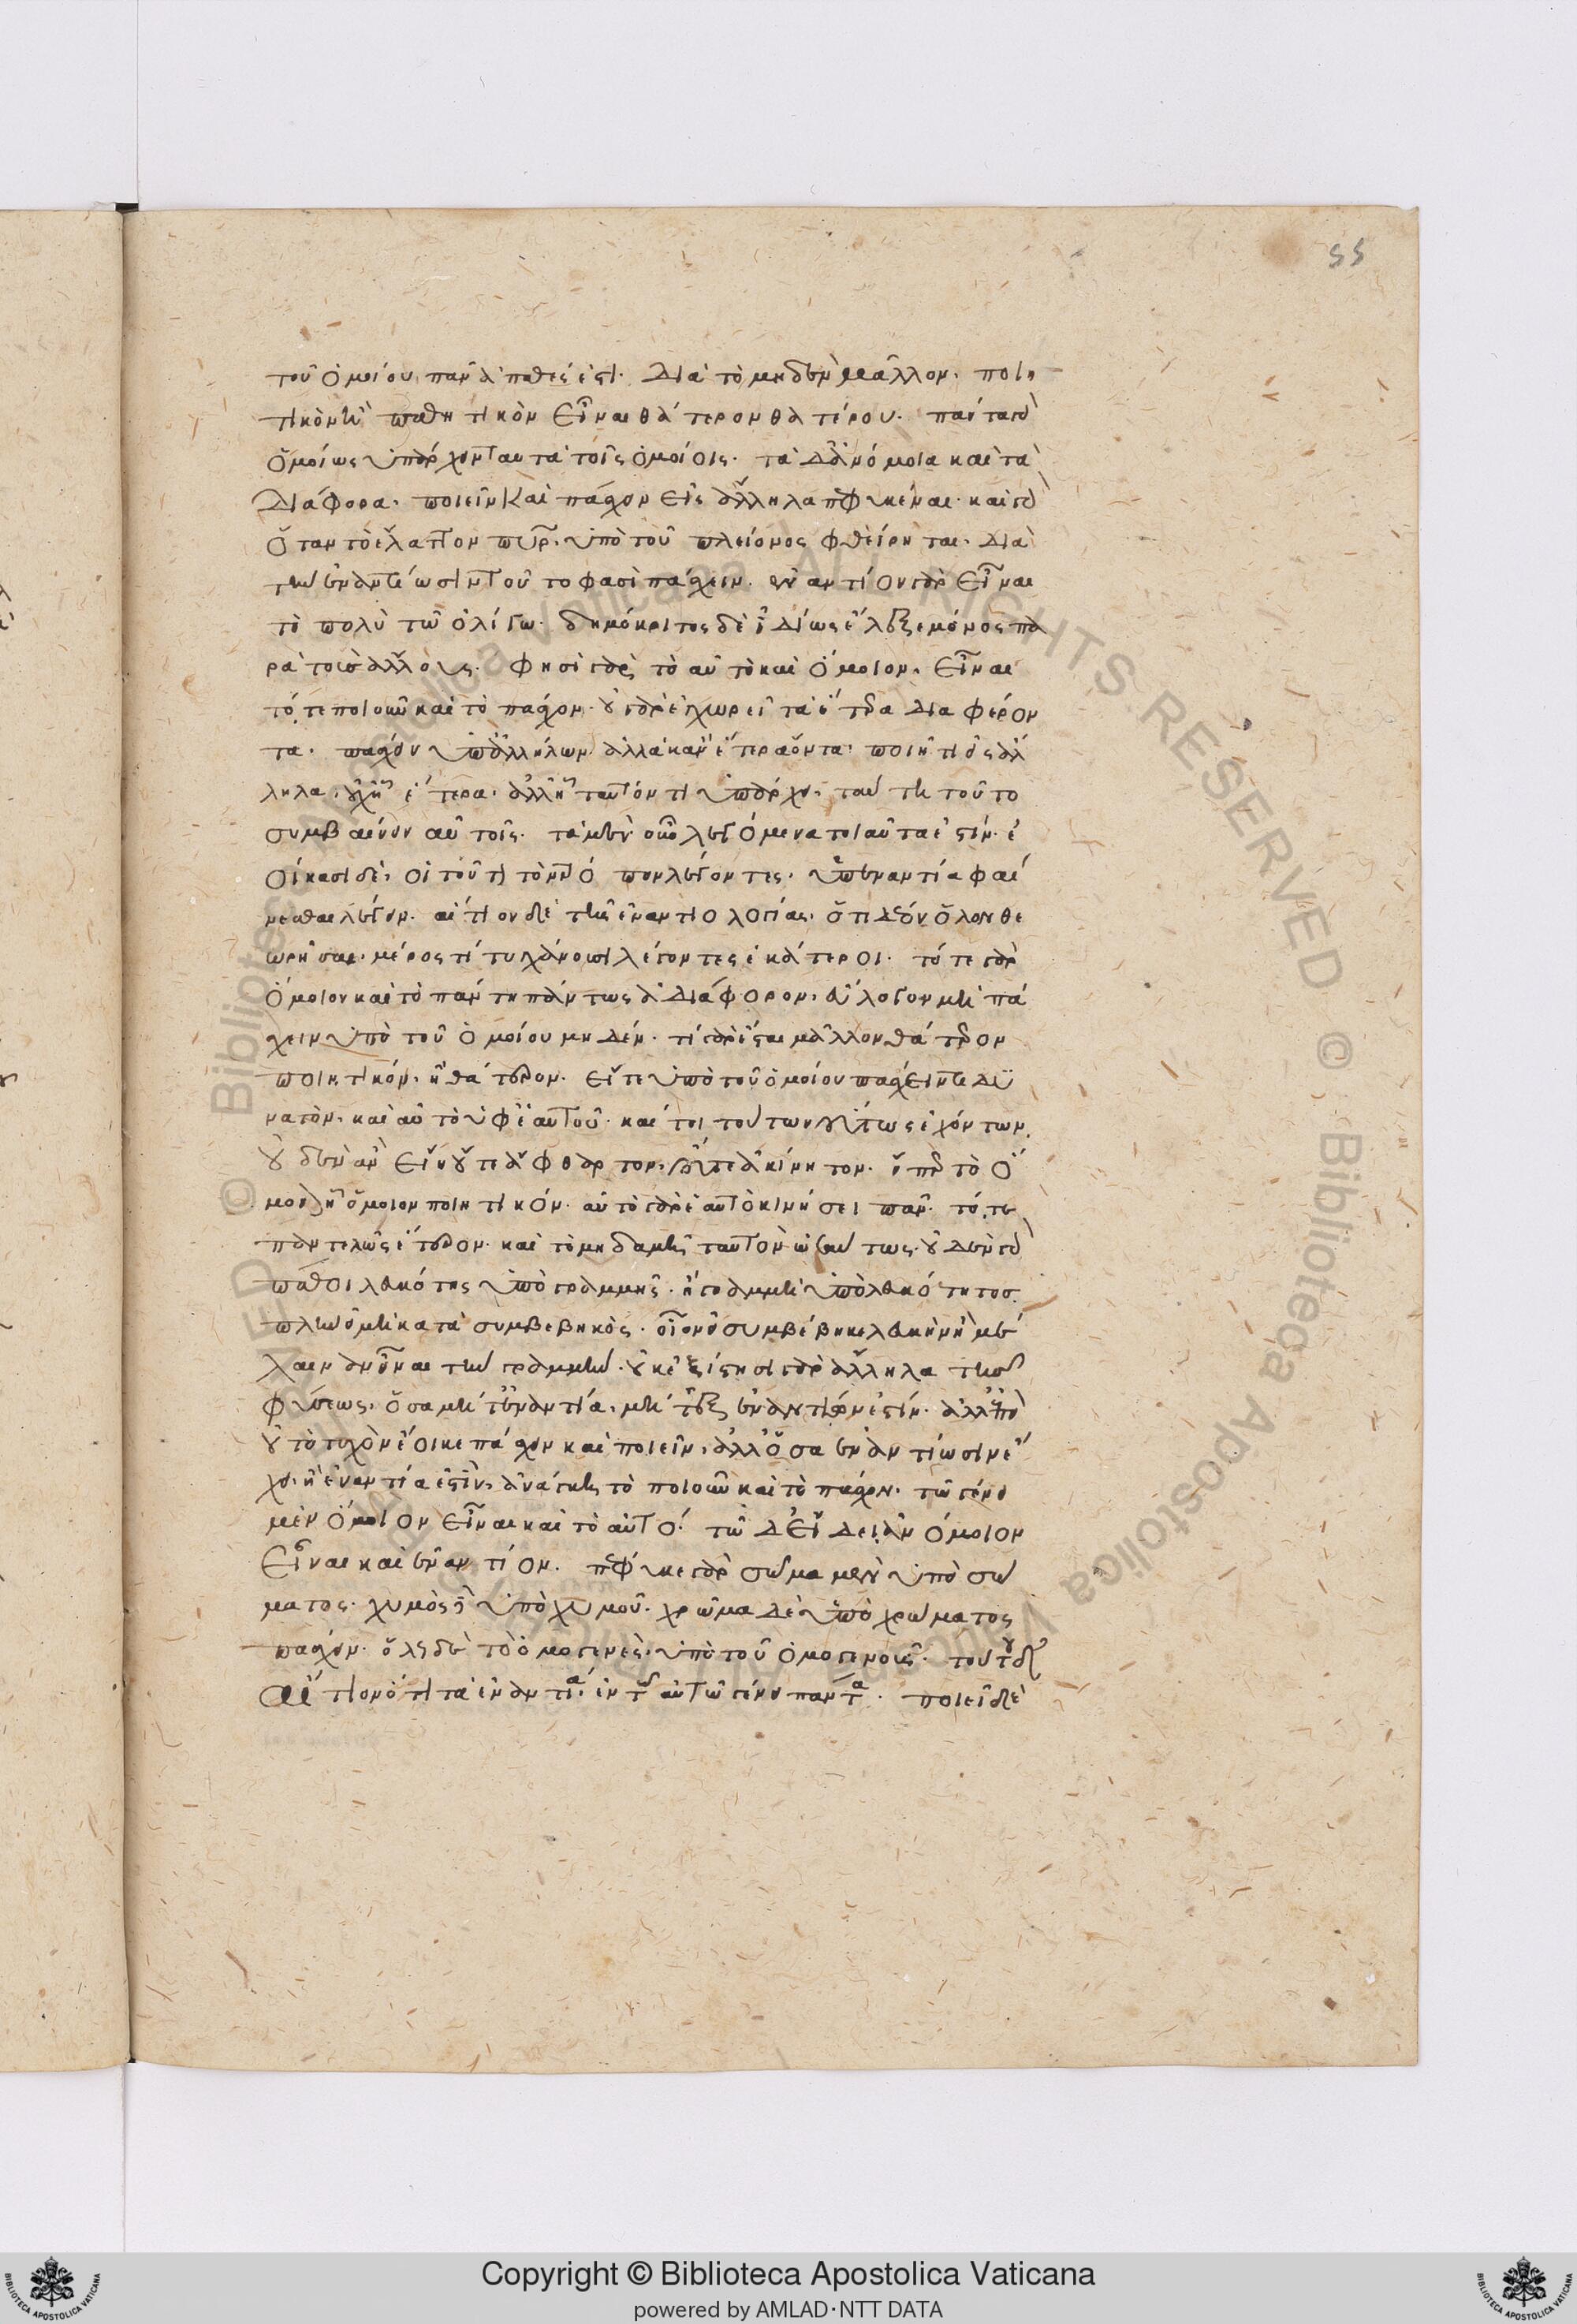 55
τοῦ ὁμοίου πᾶν ἀπαθές ἐστι. Διὰ τὸ μηδὲν μᾶλλον. ποιη
τικὸν ἢ παθητικὸν εἶναι θάτερον θατέρου. πάντα γὰρ
ὁμοίως ὑπάρχειν ταυτὰ τοῖς ὁμοίοις. τὰ δ' ἀνόμοια καὶ τὰ
Διάφορα. ποιεῖν καὶ πάσχειν εἰς ἄλληλα πεφυκέναι. καὶ γὰρ
ὅταν τὸ ἔλαττον πῦρ. ὑπὸ τοῦ πλείονος φθείρηται. Διὰ
τὴν ἐναντίωσιν τοῦτο φασὶ πάσχειν. ἐναντίον γὰρ εἶναι
τὸ πολὺ τῶ ὀλίγω. δημόκριτος δὲ ἰδίως ἔλεξε μόνος πα
ρὰ τοὺς ἄλλους. φησὶ γὰρ τὸ αὐτὸ καὶ ὅμοιον. εἶναι
τό τε ποιοῦν καὶ τὸ πάσχον. οὐ γὰρ ἐγχωρεῖ τὰ ἕτερα διαφέρον
τα. πάσχειν ὑπ' ἀλλήλων. ἀλλὰ κἂν ἕτερα ὄντα. ποιῆ τι εἰς ἄλ
ληλα. οὐχ ἧ ἕτερα. ἀλλ' ἧ ταυτόν τι ὑπάρχει. ταύτη τοῦτο
συμβαίνειν αὐτοῖς. τὰ μὲν οὖν λεγόμενα τοιαῦτα ἐστίν. ἐ
οίκασι δὲ. οἱ τοῦτον τὸν τρόπον λέγοντες. ὑπεναντία φαί
νεσθαι λέγειν. αἴτιον δὲ τῆς ἐναντιολογίας. ὅτι δέον ὅλον θε
ωρῆσαι. μέρος τι τυγχάνουσι λέγοντες ἑκάτεροι. τό τε γὰρ
ὅμοιον καὶ τὸ πάντη πάντως ἀδιάφορον. εὔλογον μὴ πά
σχειν ὑπὸ τοῦ ὁμοίου μηδέν. τί γὰρ ἔσται μᾶλλον θάτερον
ποιητικόν. ἢ θάτερον. εἴ τε ὑπὸ τοῦ ὁμοίου πάσχειν τι δυ
νατὸν. καὶ αὐτὸ ὑφ' ἑαυτοῦ. καί τοι τούτων οὕτως ἐχόντων.
οὐδὲν ἂν εἴη οὔτε ἄφθαρτον. οὔτε ἀκίνητον. εἴπερ τὸ ὅ
μοιον ἧ ὅμοιον ποιητικόν. αὐτὸ γὰρ ἑαυτὸ κινήσει πᾶν. τό τε
παντελῶς ἕτερον. καὶ τὸ μηδαμῆ ταυτὸν ὡσαύτως. οὐδὲν γὰρ
πάθοι λευκότης ὑπὸ γραμμῆς. ἢ γραμμὴ ὑπὸ λευκότητος.
πλὴν εἰ μὴ κατὰ συμβεβηκὸς. οἷον εἰ συμβέβηκε λευκὴν ἢ μέ
λαιναν εἶναι τὴν γραμμήν. οὐκ ἐξίστησι γὰρ ἄλληλα τῆς
φύσεως. ὅσα μήτ' ἐναντία. μήτ' ἐξ ἐναντίων ἐστίν. ἀλλ' ἐπεὶ
οὐ τὸ τυχὸν ἔοικε πάσχειν καὶ ποιεῖν. ἀλλ' ὅσα ἐναντίωσιν ἔ
χει. ἢ ἐναντία ἐστίν. ἀνάγκη τὸ ποιοῦν καὶ τὸ πάσχον. τῶ γένει
μὲν ὅμοιον εἶναι καὶ τὸ αὐτό. τῶ δ' εἴδει ἀνόμοιον
εἶναι καὶ ἐναντίον. πέφυκε γὰρ σῶμα μὲν ὑπὸ σώ
ματος. χυμὸς δὲ ὑπὸ χυμοῦ. χρῶμα δὲ ὑπὸ χρώματος
πάσχειν. ὅλως δὲ τὸ ὁμογενὲς. ὑπὸ τοῦ ὁμογενοῦς. τούτου δ'
αἴτιον ὅτι τὰ ἐναντία. ἐν τῶ αὐτῶ γένει πάντα. ποιεῖ δὲ
Copyright © Biblioteca Apostolica Vaticana
powered by AMLAD·NTT DATA